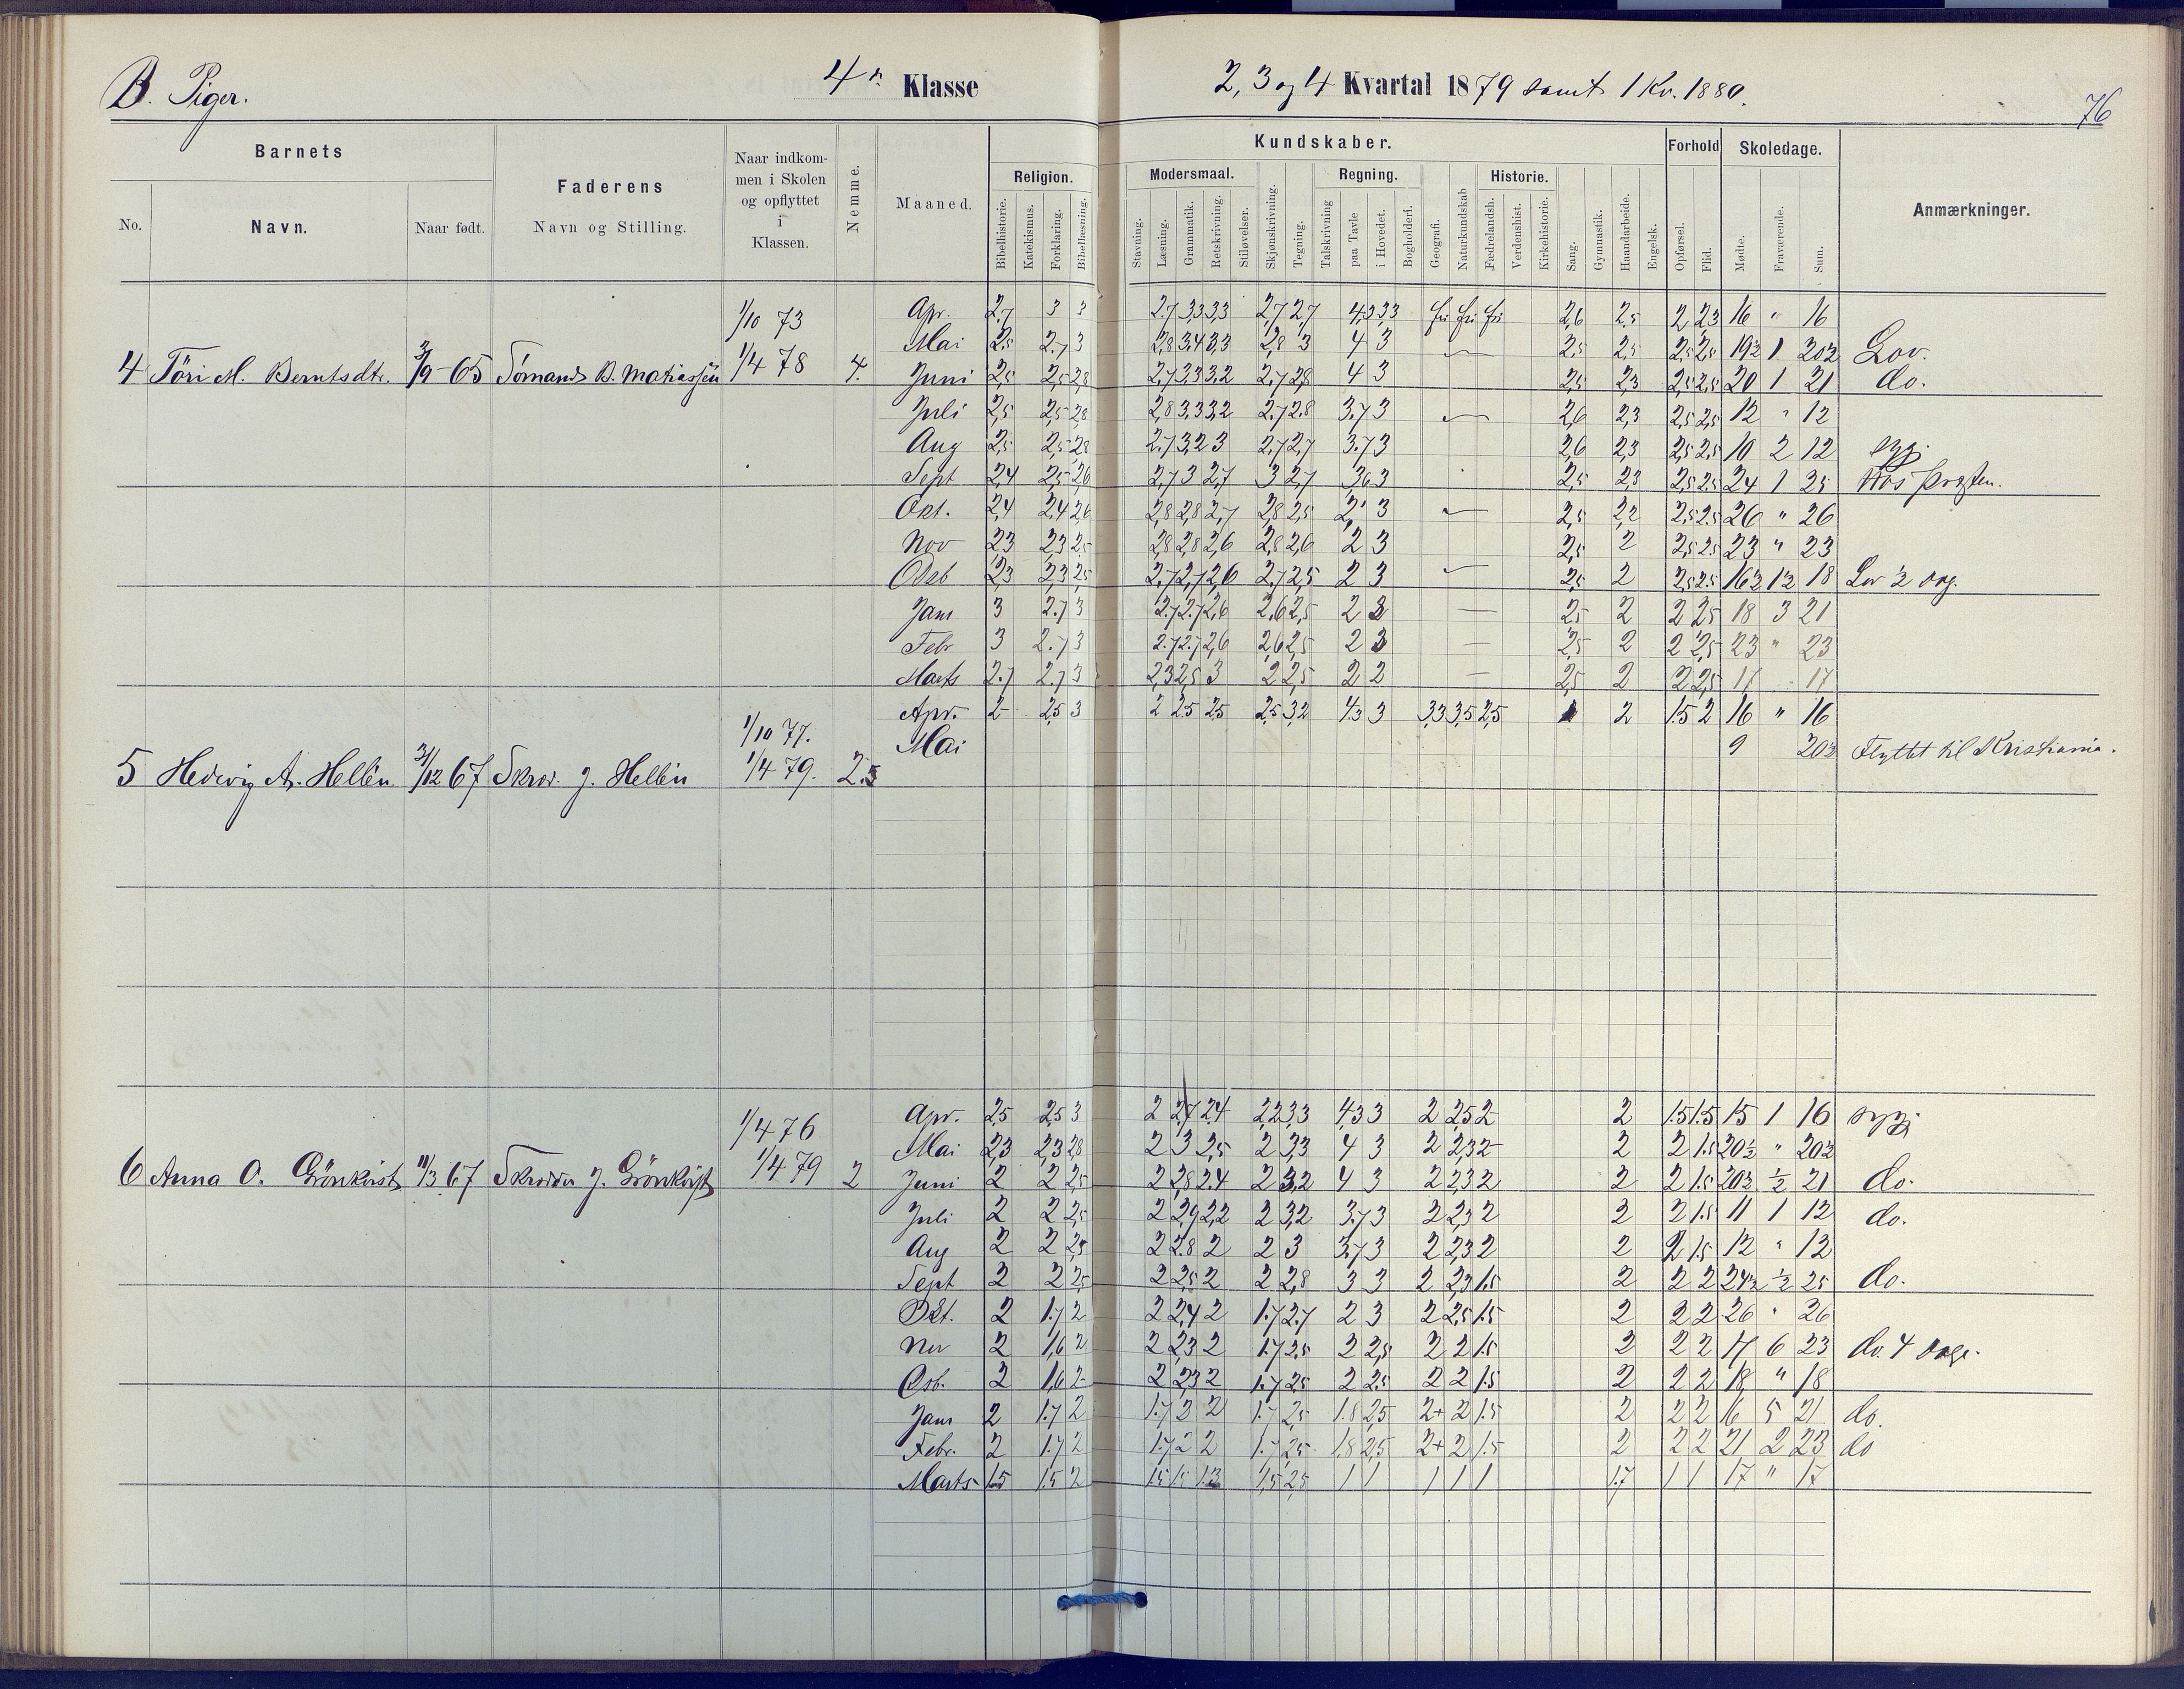 B. Piger. 4de Klasse 2, 3 og 4 Kvartal 1879 samt 1 Kv. 1880.
76
Barnets
No. Navn. Naar født.
Faderens Navn og Stilling.
Naar indkommen i Skolen og opflyttet i Klassen.
Nemme.
Maaned.
Kundskaber.
Religion. Modersmaal. Regning. Historie.
Bibelhistorie. Katekismus. Forklaring. Bibellæsning. Stavning. Læsning. Grammatik. Retskrivning. Stiløvelser. Skjønskrivning. Tegning. Talskrivning paa Tavle i Hovedet. Bogholderi. Geografi. Naturkundskab Fædrelandsh. Verdenshist. Kirkehistorie. Sang. Gymnastik. Haandarbeide. Engelsk.
Forhold Opførsel. Flid.
Skoledage. Mødte. Fraværende. Sum.
Anmærkninger.
1/10 73
4 Töri M. Berntsdtr. 3/9-65 Sømands B. Matiassen 1/4 78 4.
Apr. 2,7 3 3 2,7 3,3 3,3 2,7 2,7 4,3 3,3 fri fri fri 2,6 2,5 2 2,3 16 " 16
Mai 2,5 2,7 3 2,8 3,4 3,3 2,8 3 4 3 2,5 2,5 2,5 2,5 19½ 1 20½ Lov.
Juni 2,5 2,5 2,8 2,7 3,3 3,2 2,7 2,8 4 3 2,5 2,3 2,5 2,5 20 1 21 do.
Juli 2,5 2,5 2,8 2,8 3,3 3,2 2,7 2,8 3,7 3 2,6 2,3 2,5 2,5 12 " 12
Aug 2,5 2,5 2,8 2,7 3,2 3 2,7 2,7 3,7 3 2,6 2,3 2,5 2,5 10 2 12
Sept 2,4 2,5 2,6 2,7 3 2,7 3 2,7 3,6 3 2,5 2,3 2,5 2,5 24 1 25 Hos Præsten.
Okt. 2,4 2,4 2,6 2,8 2,8 2,7 2,8 2,5 2 3 2,5 2,2 2,5 2,5 26 " 26
Nov 2,3 2,3 2,5 2,8 2,8 2,6 2,8 2,6 2 3 2,5 2 2,5 2,5 23 " 23
Dsb 2,3 2,3 2,5 2,7 2,7 2,6 2,7 2,5 2 3 2,5 2 2,5 2,5 16½ 1½ 18 Lov ½ dag.
Jann 3 2,7 3 2,7 2,7 2,6 2,6 2,5 2 3 — 2,5 2 2 2,5 18 3 21
Febr 3 2,7 3 2,7 2,7 2,6 2,6 2,5 2 3 — 2,5 2 2 2,5 23 " 23
Marts 2,7 2,7 3 2,3 2,5 3 2 2,5 2 2 — 2,5 2 2 2,5 17 17
1/10 77.
5 Hedvig A. Hellin 31/12 67 Skræd. J. Hellin 1/4 79. 2.5
Apr. 2 2,5 3 2 2,5 2,5 2,5 3,2 4,3 3 3,3 3,5 2,5 2 1.5 2 16 " 16
Mai 9 20½ Flyttet til Kristiania.
1/4 76
6 Anna O. Grönkvist 11/3 67 Skrædder J. Grönkvist 1/4 79 2
Apr. 2,5 2,5 3 2 2,7 2,4 2,2 3,3 4,3 3 2 2,5 2 2 1.5 1.5 15 1 16 syg
Mai 2,3 2,3 2,8 2 3 2,5 2 3,3 4 3 2 2,3 2 2 2 1.5 20½ " 20½
Juni 2 2 2,5 2 2,8 2.4 2 3,2 4 3 2 2,3 2 2 2 1.5 20½ ½ 21 do.
Juli 2 2 2,5 2 2,9 2,2 2 3,2 3,7 3 2 2,3 2 2 2 1.5 11 1 12 do.
Aug 2 2 2,5 2 2.8 2 2 3 3,7 3 2 2,3 2 2 2 1.5 12 " 12
Sept 2 2 2,5 2 2,5 2 2 2,8 3 3 2 2,3 1.5 2 2 2 24½ ½ 25 do.
Okt. 2 1.7 2 2 2,4 2 1.7 2.7 2 3 2 2,5 1.5 2 2 2 26 " 26
Nov 2 1,6 2 2 2,3 2 1.7 2.5 2 2,5 2 2 1.5 2 2 2 17 6 23 do. 4 dage.
Dsb. 2 1,6 2 2 2,3 2 1.7 2,5 2 2.5 2 2 1.5 2 2 2 18 " 18
Jann 2 1.7 2 1.7 2 2 1.7 2,5 1.8 2,5 2+ 2 1.5 2 2 2 16 5 21 do.
Febr. 2 1.7 2 1.7 2 2 1.7 2,5 1.8 2,5 2+ 2 1.5 2 2 2 21 2 23 do
Marts 1.5 1.5 2 1.5 1.5 1.3 1,5 2,5 1 1 1 1 1 1.7 1 1 17 " 17